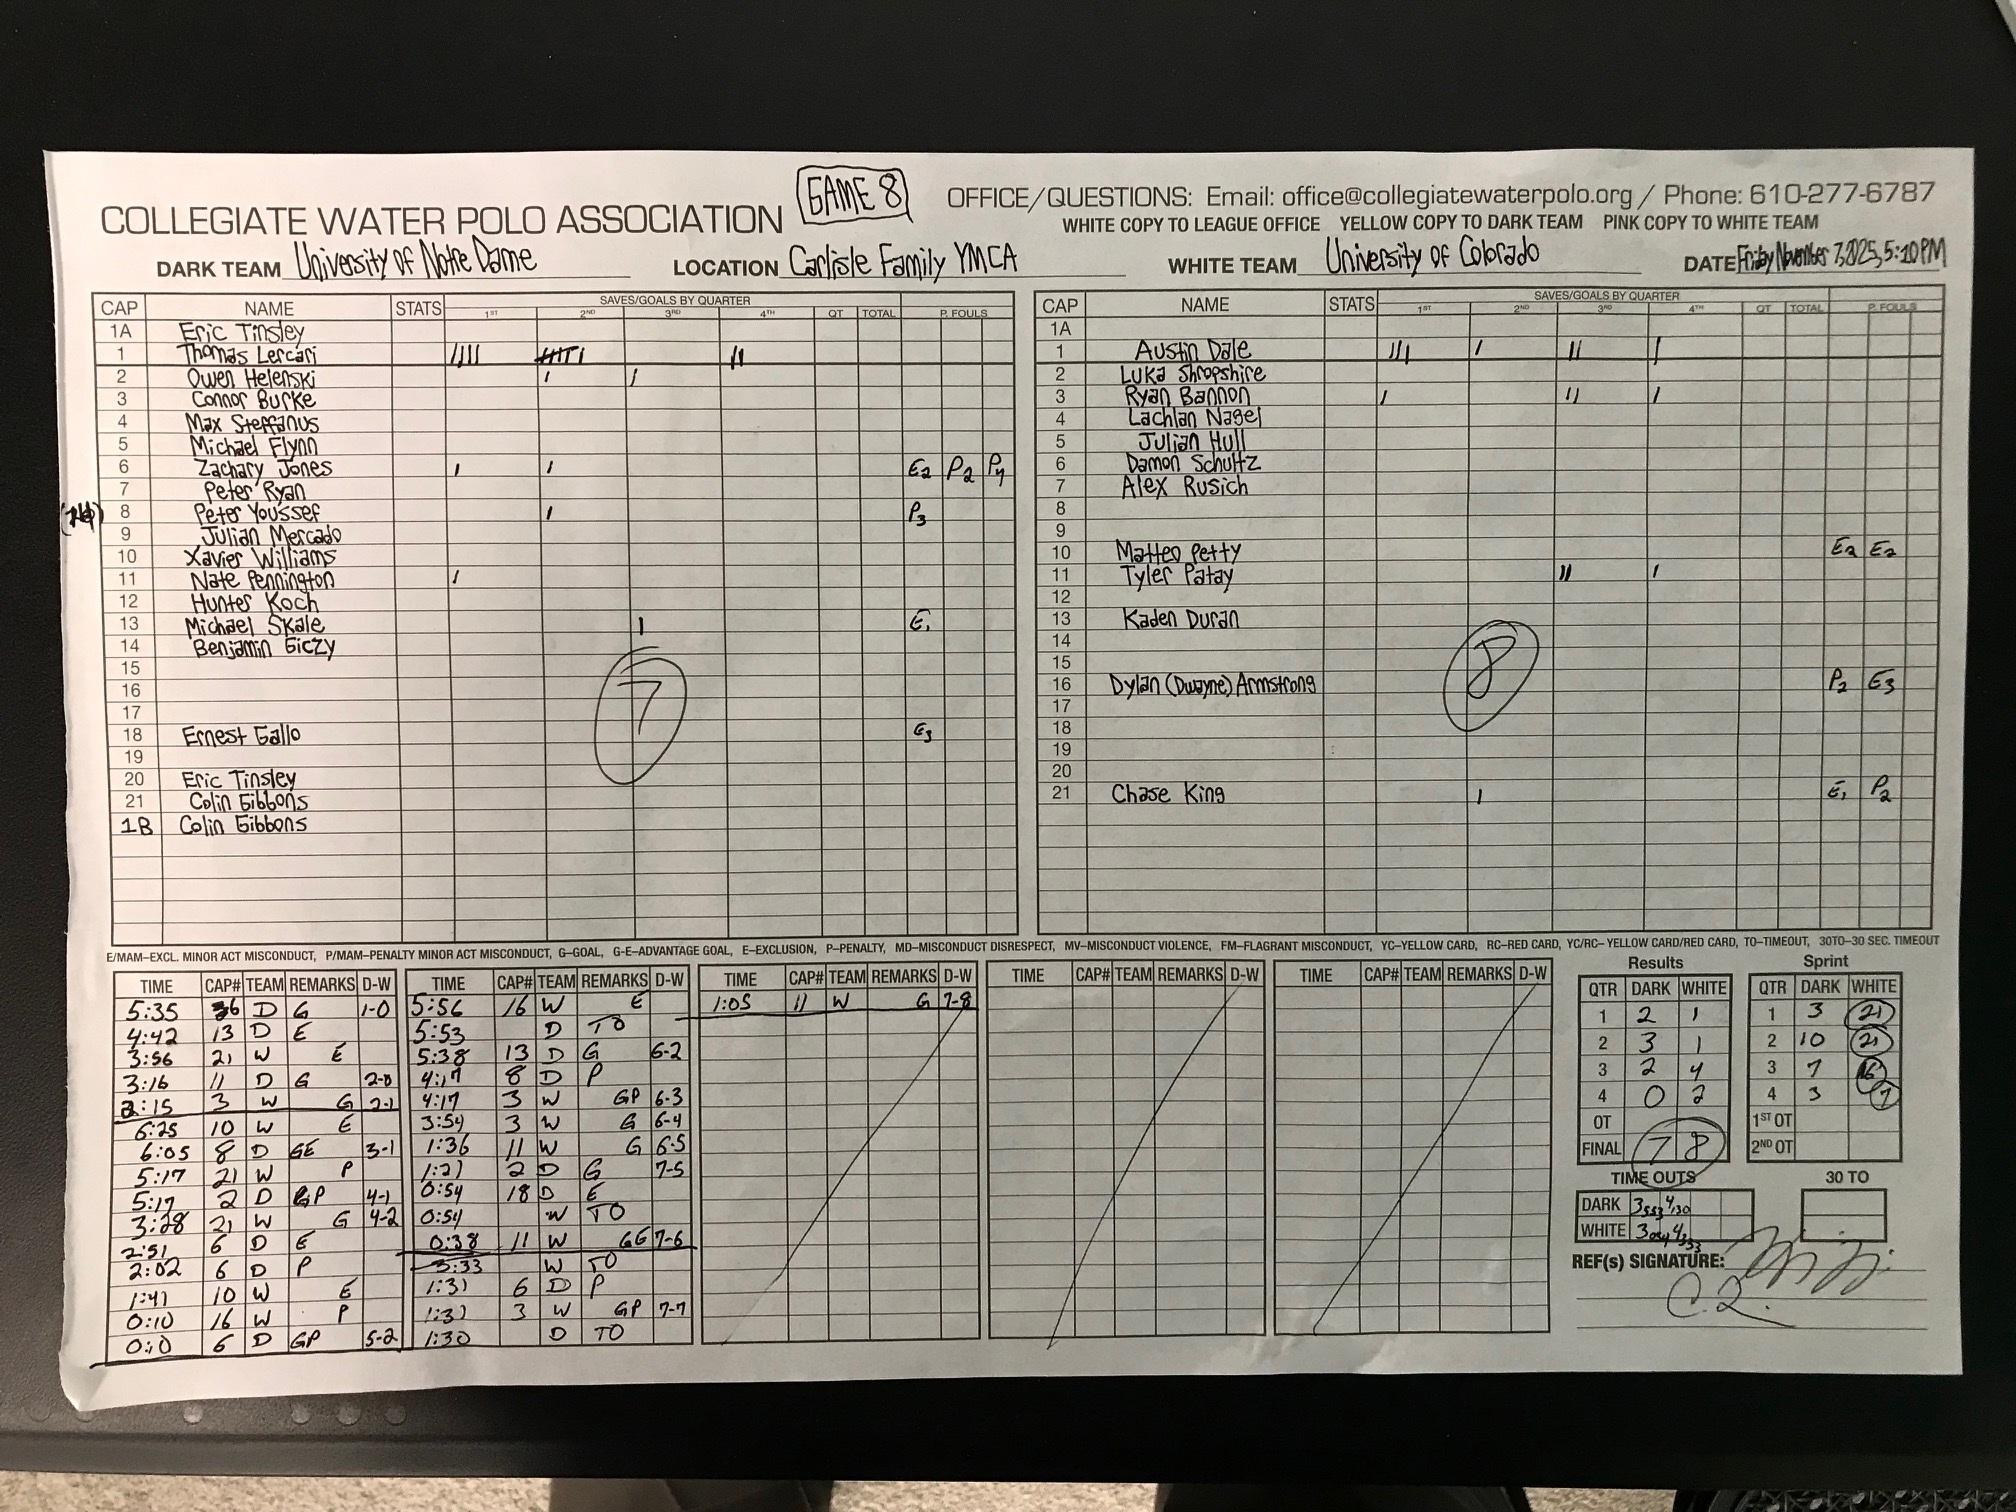 GAME 8
COLLEGIATE WATER POLO ASSOCIATION
OFFICE/QUESTIONS: Email: office@collegiatewaterpolo.org / Phone: 610-277-6787
WHITE COPY TO LEAGUE OFFICE YELLOW COPY TO DARK TEAM PINK COPY TO WHITE TEAM
DARK TEAM University of Notre Dame LOCATION Carlisle Family YMCA WHITE TEAM University of Colorado DATE Friday November 7, 2025, 5:10 PM
CAP NAME STATS SAVES/GOALS BY QUARTER
1ST 2ND 3RD 4TH OT TOTAL P. FOULS
1A Eric Tinsley
1 Thomas Lercari
2 Owen Helenski
3 Connor Burke
4 Max Steffanus
5 Michael Flynn
6 Zachary Jones E2 P2 P4
7 Peter Ryan
8 Peter Youssef P3
9 Julian Mercado
10 Xavier Williams
11 Nate Pennington
12 Hunter Koch
13 Michael Skale E1
14 Benjamin Giczy
15
16
17
18 Ernest Gallo E3
19
20 Eric Tinsley
21 Colin Gibbons
1B Colin Gibbons
7
CAP NAME STATS SAVES/GOALS BY QUARTER
1ST 2ND 3RD 4TH OT TOTAL P. FOULS
1A
1 Austin Dale
2 Luka Shropshire
3 Ryan Bannon
4 Lachlan Nagel
5 Julian Hull
6 Damon Schultz
7 Alex Rusich
8
9
10 Matteo Petty E2 E2
11 Tyler Patay
12
13 Kaden Duran
14
15
16 Dylan (Dwayne) Armstrong P2 E3
17
18
19
20
21 Chase King E1 P2
8
E/MAM–EXCL. MINOR ACT MISCONDUCT, P/MAM–PENALTY MINOR ACT MISCONDUCT, G–GOAL, G-E–ADVANTAGE GOAL, E–EXCLUSION, P–PENALTY, MD–MISCONDUCT DISRESPECT, MV–MISCONDUCT VIOLENCE, FM–FLAGRANT MISCONDUCT, YC–YELLOW CARD, RC–RED CARD, YC/RC– YELLOW CARD/RED CARD, TO–TIMEOUT, 30TO–30 SEC. TIMEOUT
TIME CAP# TEAM REMARKS D-W
5:35 6 D G 1-0
4:42 13 D E
3:56 21 W E
3:16 11 D G 2-0
2:15 3 W G 2-1
6:25 10 W E
6:05 8 D GE 3-1
5:17 21 W P
5:17 2 D GP 4-1
3:28 21 W G 4-2
2:51 6 D E
2:02 6 D P
1:41 10 W E
0:10 16 W P
0:10 6 D GP 5-2
TIME CAP# TEAM REMARKS D-W
5:56 16 W E
5:53 D TO
5:38 13 D G 6-2
4:17 8 D P
4:17 3 W GP 6-3
3:54 3 W G 6-4
1:36 11 W G 6-5
1:21 2 D G 7-5
0:54 18 D E
0:54 W TO
0:38 11 W GE 7-6
3:33 W TO
1:31 6 D P
1:31 3 W GP 7-7
1:30 D TO
TIME CAP# TEAM REMARKS D-W
1:05 11 W G 7-8
TIME CAP# TEAM REMARKS D-W
TIME CAP# TEAM REMARKS D-W
Results
QTR DARK WHITE
1 2 1
2 3 1
3 2 4
4 0 2
OT
FINAL 7 8
Sprint
QTR DARK WHITE
1 3 21
2 10 21
3 7 16
4 3 7
1ST OT
2ND OT
TIME OUTS
DARK 3 553 4 130
WHITE 3 054 4 333
30 TO
REF(s) SIGNATURE: